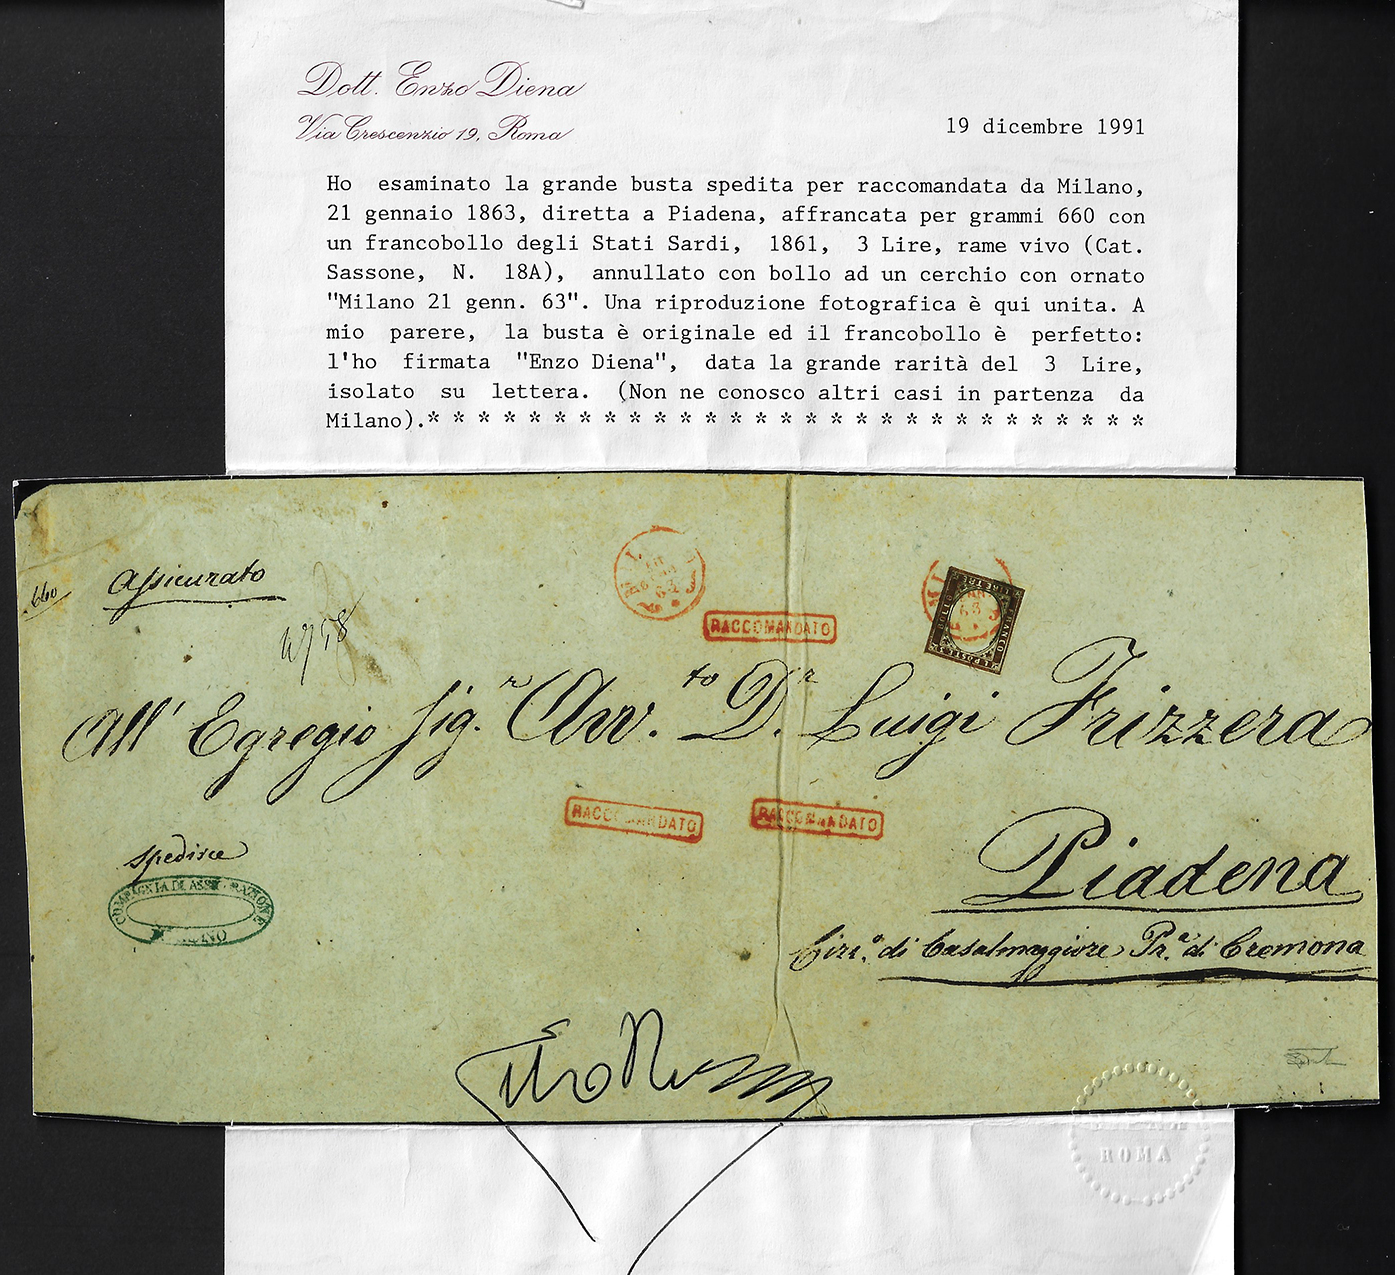 Dott. Enzo Diena
Via Crescenzio 19, Roma
19 dicembre 1991
Ho esaminato la grande busta spedita per raccomandata da Milano,
21 gennaio 1863, diretta a Piadena, affrancata per grammi 660 con
un francobollo degli Stati Sardi, 1861, 3 Lire, rame vivo (Cat.
Sassone, N. 18A), annullato con bollo ad un cerchio con ornato
"Milano 21 genn. 63". Una riproduzione fotografica è qui unita. A
mio parere, la busta è originale ed il francobollo è perfetto:
l'ho firmata "Enzo Diena", data la grande rarità del 3 Lire,
isolato su lettera. (Non ne conosco altri casi in partenza da
Milano).* * * * * * * * * * * * * * * * * * * * * * * * * * * * *
660
Assicurato
RACCOMANDATO
All' Egregio Sig.r Avv.to D.r Luigi Frizzera
RACCOMANDATO
RACCOMANDATO
Piadena
Circ.o di Casalmaggiore Pr.a di Cremona
spedisce
COMPAGNIA DI ASSICURAZIONE
MILANO
ROMA